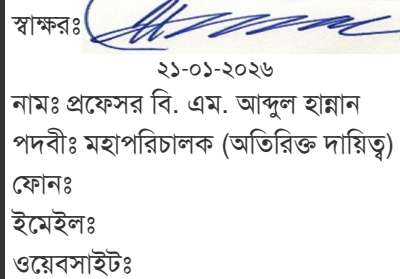 স্বাক্ষরঃ
২১-০১-২০২৬
নামঃ প্রফেসর বি. এম. আব্দুল হান্নান
পদবীঃ মহাপরিচালক (অতিরিক্ত দায়িত্ব)
ফোনঃ
ইমেইলঃ
ওয়েবসাইটঃ